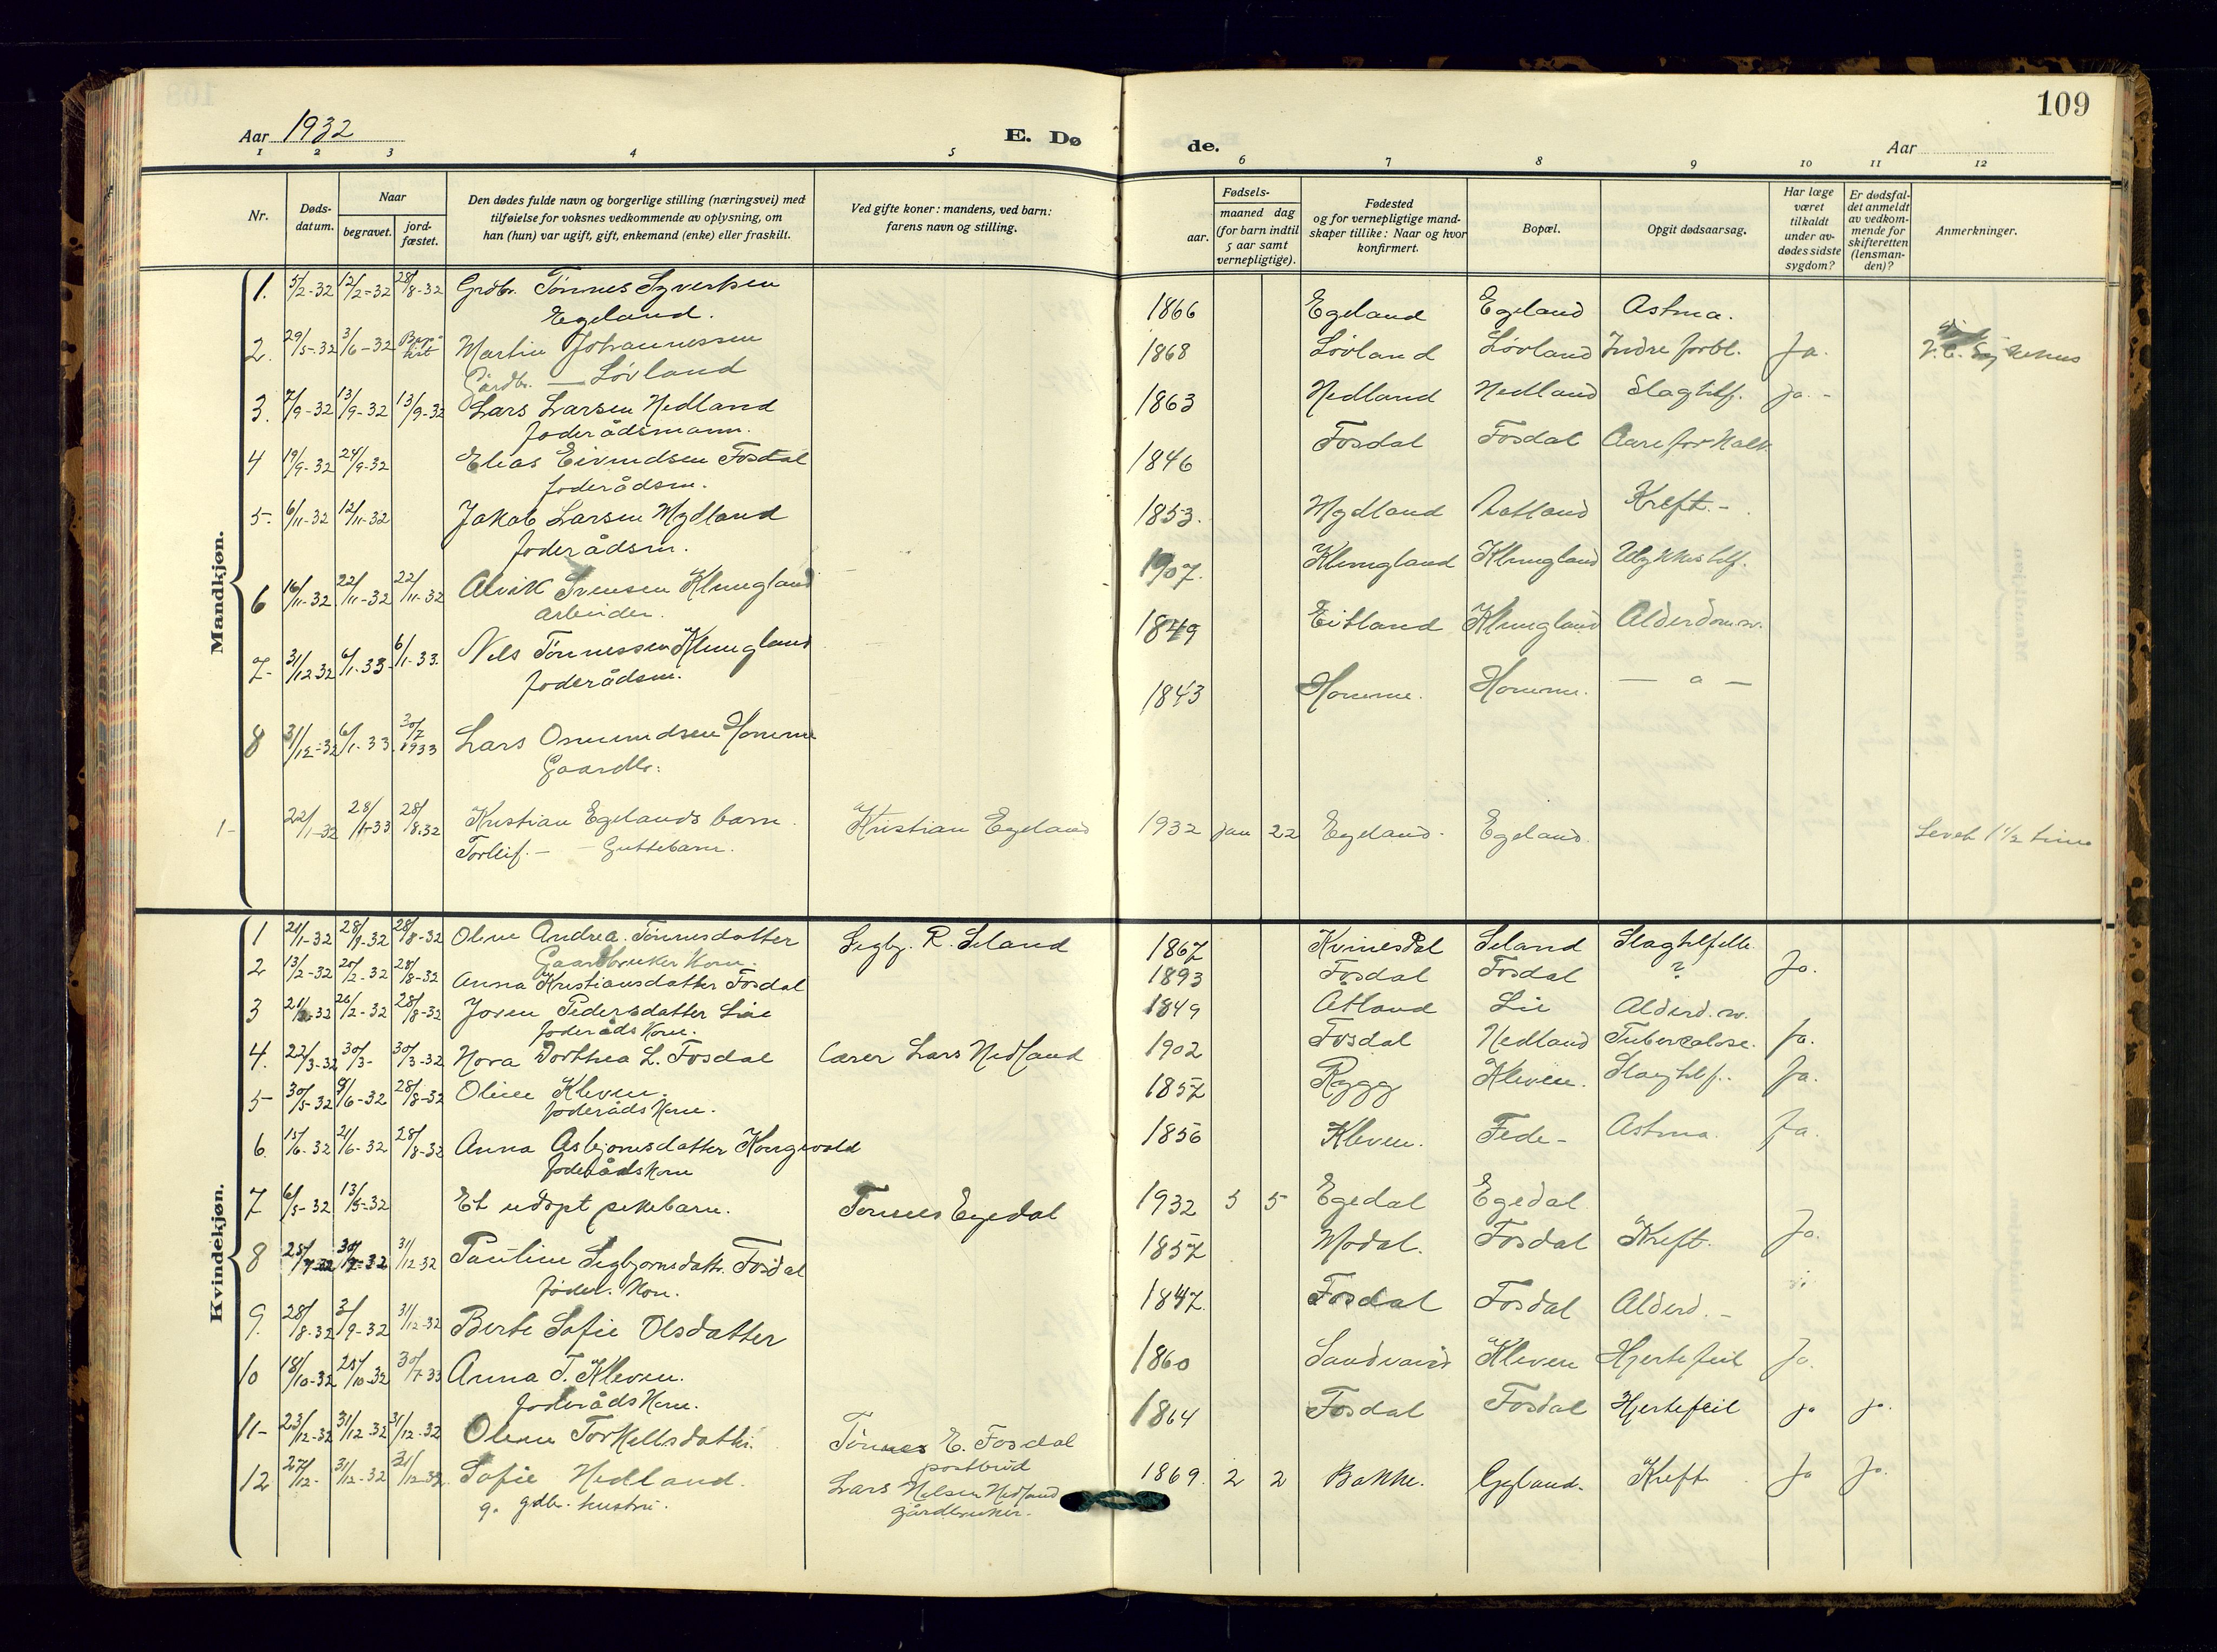 109
Aar 1932
E. Dø
de.
Aar
1 2 3 4 5 6 7 8 9 10 11 12
Nr.
Døds-
datum.
Naar
begravet.
jord-
fæstet.
Den dødes fulde navn og borgerlige stilling (næringsvei) med
tilføielse for voksnes vedkommende av oplysning, om
han (hun) var ugift, gift, enkemand (enke) eller fraskilt.
Ved gifte koner: mandens, ved barn:
farens navn og stilling.
Fødsels-
aar.
maaned dag
(for barn indtil
5 aar samt
vernepligtige).
Fødested
og for vernepligtige mand-
skaper tillike: Naar og hvor
konfirmert.
Bopæl.
Opgit dødsaarsag.
Har læge
været
tilkaldt
under av-
dødes sidste
sygdom?
Er dødsfal-
det anmeldt
av vedkom-
mende for
skifteretten
(lensman-
den)?
Anmerkninger.
Mandkjøn.
1. 5/2-32 12/2-32 28/8-32 Grdbr. Tønnes Syvertsen
Egeland.
1866 Egeland Egeland Astma.
2. 29/5-32 3/6-32 Martin Johannessen
Gårdbr. — Løvland
1868 Løvland Løvland Indre forbl. Ja. Sykehus
3. 7/9-32 13/9-32 13/9-32 Lars Larsen Nedland
foderådsmann.
1863 Nedland Nedland Slagtilf. ja. -
4 19/9-32 24/9-32 Elias Eivindsen Fosdal
foderådsm.
1846 Fosdal Fosdal Aareforkalk.
5. 6/11-32 12/11-32 Jakob Larsen Mydland
foderådsm.
1853. Mydland Aatland Kreft. -
6 16/11-32 22/11-32 22/11-32 Alvik Svensen Klungland
arbeider.
1907. Klungland Klungland Ulykkestilf.
7- 31/12-32 6/1-33 6/1-33. Nils Tønnessen Klungland
foderådsm.
1849 Eitland Klungland Alderdomsv.
8 31/12-32 6/1-33. 30/7 1933 Lars Osmundsen Homme
Gaardbr.
1843 Homme. Homme. — a —
1- 22/1-32 28/1-33 28/8.32 Kristian Egelands barn. Kristian Egeland 1932 jan 22 Egeland. Egeland. Levet 1 1/2 time
Torleif. — Guttebarn.
Kvindekjøn.
1 21/1-32 28/1-32 28/8-32 Oline Andrea Tønnesdatter Sigbj. R. Seland 1867 Kvinesdal Seland Slagtilfelle
Gaardbruker kone.
2 13/2-32 20/2-32 28/8-32 Anna Kristiansdatter Fosdal 1893 Fosdal Fosdal ? Ja.
3 21/2-32 26/2-32 28/8-32 Joren Pedersdatter Lie 1849 Åtland Lie Alderd. sv.
foderådskone.
4. 22/3-32 30/3- 30/3-32 Nora Dorthea L. Fosdal Lærer Lars Nedland 1902 Fosdal Nedland Tuberculose. Ja.
5 30/5-32 9/6-32 28/8-32 Oline Kleven.
foderådskone.
1857 Rygg Kleven. Slagtilf. Ja.
6. 15/6-32 21/6-32 28/8-32 Anna Asbjørnsdatter Kongevold
foderådskone
1856 Kleven. Fede - Astma. Ja.
7 6/5-32 13/5-32 Et udøpt pikebarn. Tønnes Egedal 1932 5 5 Egedal Egedal
8 25/7-32 30/7-32 31/12-32 Pauline Sigbjørnsdatr. Fosdal
foder. kon.
1857 Modal. Fosdal Kreft. Ja.
9. 28/8-32 3/9-32 31/12-32 Berte Sofie Olsdatter 1847. Fosdal Fosdal Alderd. -
10 18/10-32 25/10-32 30/7-33 Anna T. Kleven.
foderådskone.
1860 Sandvand Kleven Hjertefeil Ja.
11- 23/12-32 31/12-32 31/12-32 Oline Torkellsdattr. Tønnes E. Fosdal
postbud
1864 Fosdal Fosdal Hjertefeil ja ja.
12 27/12- 31/12-32 31/12-32 Sofie Nedland. Lars Nilsen Nedland
g. gdbr. hustru. gårdbruker.
1869. 2 2 Bakke. Gyland. Kreft Ja Ja.